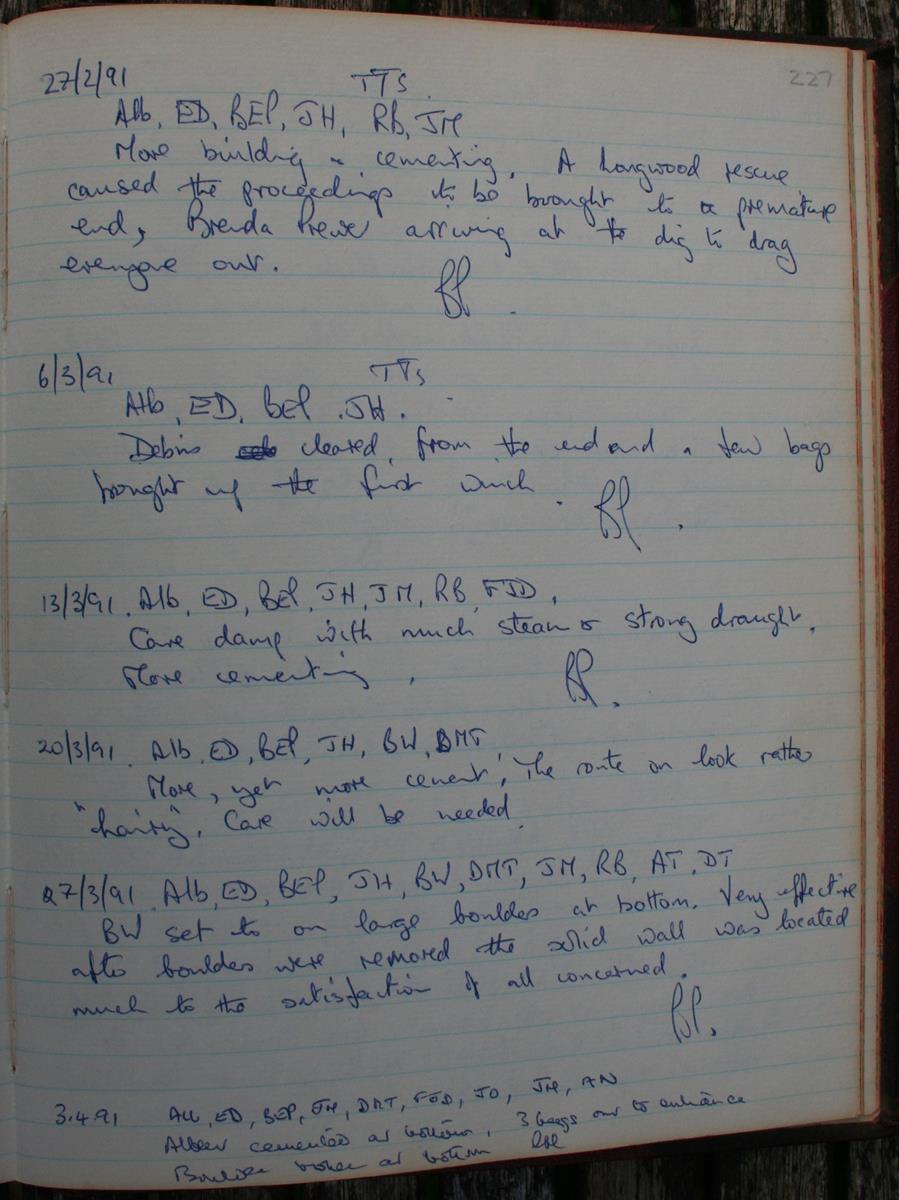 227
27/2/91 TTS.
Alb, ED, BEP, JH, RB, JM
More building & cementing. A Longwood rescue
caused the proceedings to be brought to a premature
end, Brenda Prewer arriving at the dig to drag
everyone out.
BP.
6/3/91 TTS
Alb, ED, BEP, JH.
Debris cleared from the end and a few bags
brought up the first winch.
BP.
13/3/91. Alb, ED, BEP, JH, JM, RB, FJD.
Cave damp with much steam & strong draught.
More cementing.
BP.
20/3/91. Alb, ED, BEP, JH, BW, DMT
More, yet more cement! The route on look rather
"hairy". Care will be needed.
27/3/91. Alb, ED, BEP, JH, BW, DMT, JM, RB, AT, DT
BW set to on large boulder at bottom. Very effective
after boulders were removed the solid wall was located
much to the satisfaction of all concerned.
BP.
3.4.91 Alb, ED, BEP, JH, DMT, FJD, JO, JM, AN
Albert cemented at bottom, 3 bags out to entrance
Boulder broken at bottom